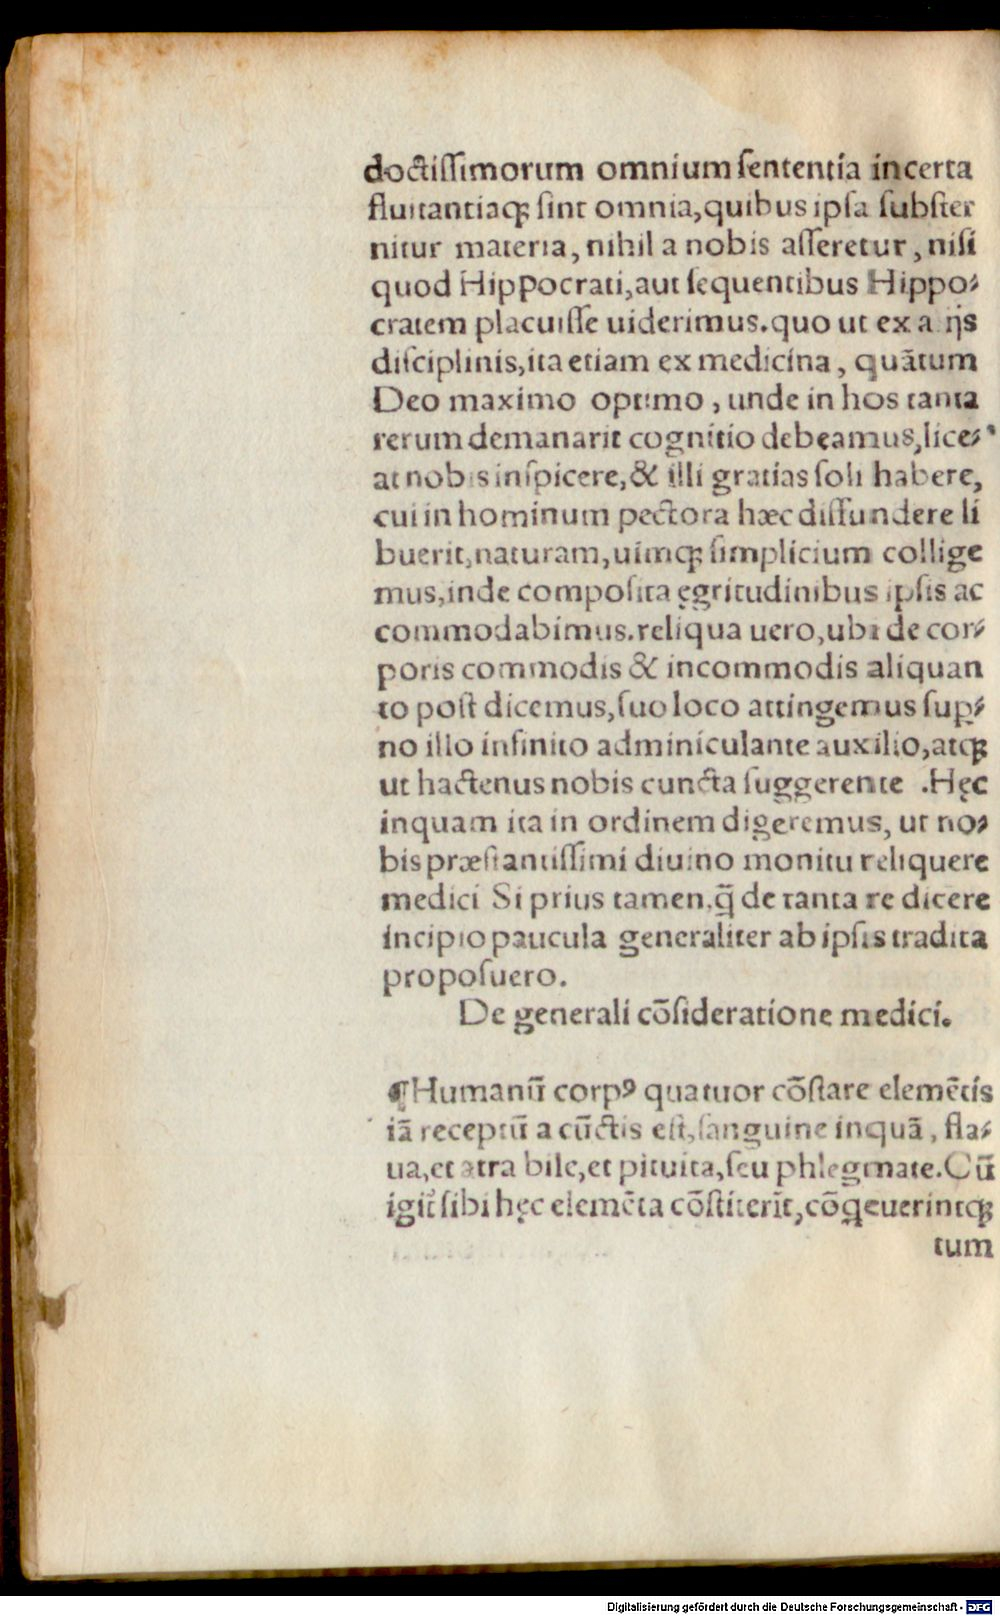 doctiſſimorum omnium ſententia incerta
fluitantiaq; ſint omnia, quibus ipſa ſubſter
nitur materia, nihil a nobis aſſeretur, niſi
quod Hippocrati, aut ſequentibus Hippo⸗
cratem placuiſſe uiderimus. quo ut ex alijs
diſciplinis, ita etiam ex medicina, quātum
Deo maximo optimo, unde in hos tanta
rerum demanarit cognitio debeamus, lice⸗
at nobis inſpicere, & illi gratias ſoli habere,
cui in hominum pectora hæc diffundere li
buerit, naturam, uimq; ſimplicium collige
mus, inde compoſita ęgritudinibus ipſis ac
commodabimus. reliqua uero, ubi de cor⸗
poris commodis & incommodis aliquan
to poſt dicemus, ſuo loco attingemus ſup⸗
no illo infinito adminiculante auxilio, atq;
ut hactenus nobis cuncta ſuggerente . Hęc
inquam ita in ordinem digeremus, ut no⸗
bis præſtantiſſimi diuino monitu reliquere
medici Si prius tamen, q̃ de tanta re dicere
incipio paucula generaliter ab ipſis tradita
propoſuero.
De generali cōſideratione medici.
¶Humanū corpꝰ quatuor cōſtare elemētis
iā receptū a cūctis eſt, ſanguine inquā, fla⸗
ua, et atra bile, et pituita, ſeu phlegmate. Cū
igit᷑ ſibi hęc elemēta cōſtiterīt, cōꝗeuerintq;
tum
Digitalisierung gefördert durch die Deutsche Forschungsgemeinschaft - DFG